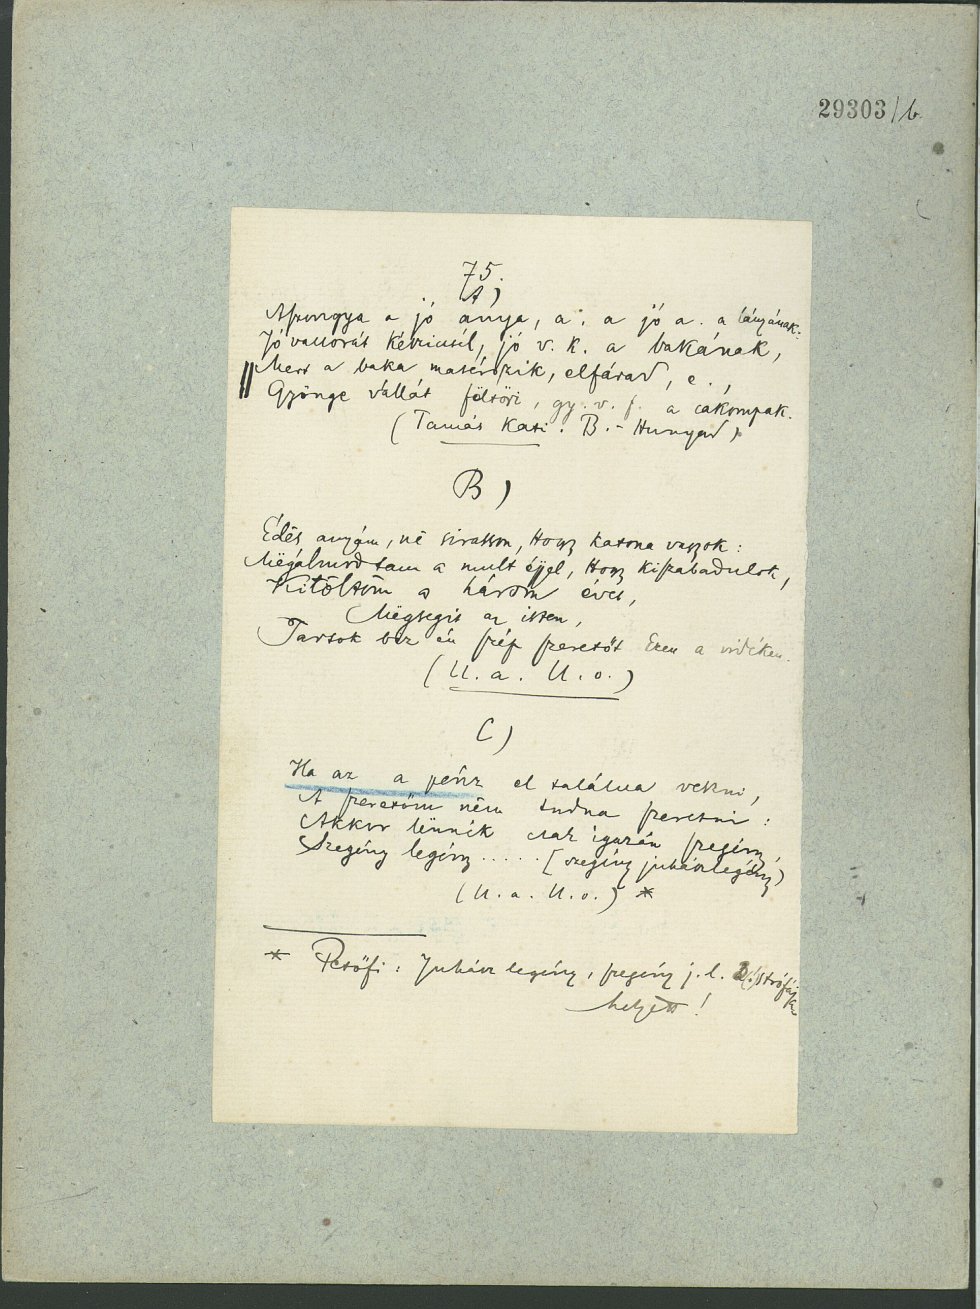 29303/b
75.
A)
Aszongya a jó anya, a. a jó a. a lányának:
Jó vacsorát készicsél, jó v. k. a bakának,
Mert a baka masérozik, elfárad, e.,
Gyönge vállát föltöri, gy. v. f. a cakompak.
(Tamás Kati. B.-Hunyad)
B)
Édĕs anyám, nĕ sirasson, hogy katona vagyok:
Mĕgálmodtam a mult éjjel, hogy kiszabadulok,
Kitöltöm a három évet,
Mĕgsegit az isten,
Tartok biz én szép szeretőt ezen a vidéken.
(U. a. U. o.)
C)
Ha az a pénz el találna veszni,
A szeretőm nĕm tudna szeretni:
Akkor lĕnnék csak igazán szegény,
Szegény legény ..... [szegény juhászlegény)
(U. a. U. o.) *
* Petőfi: Juhász legény, szegény j. l. 3(?) strófája
helyett!